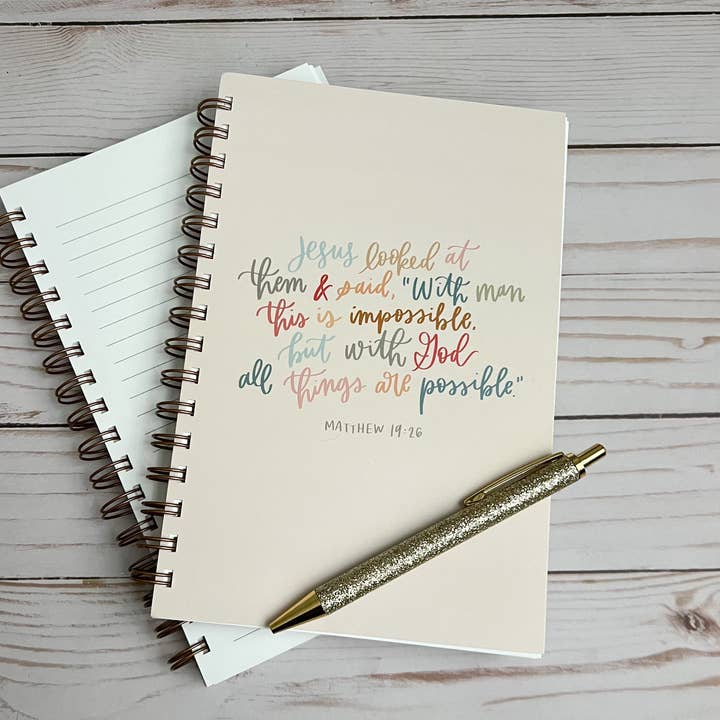 Jesus looked at
them & said, "With man
this is impossible,
but with God
all things are possible."
MATTHEW 19:26